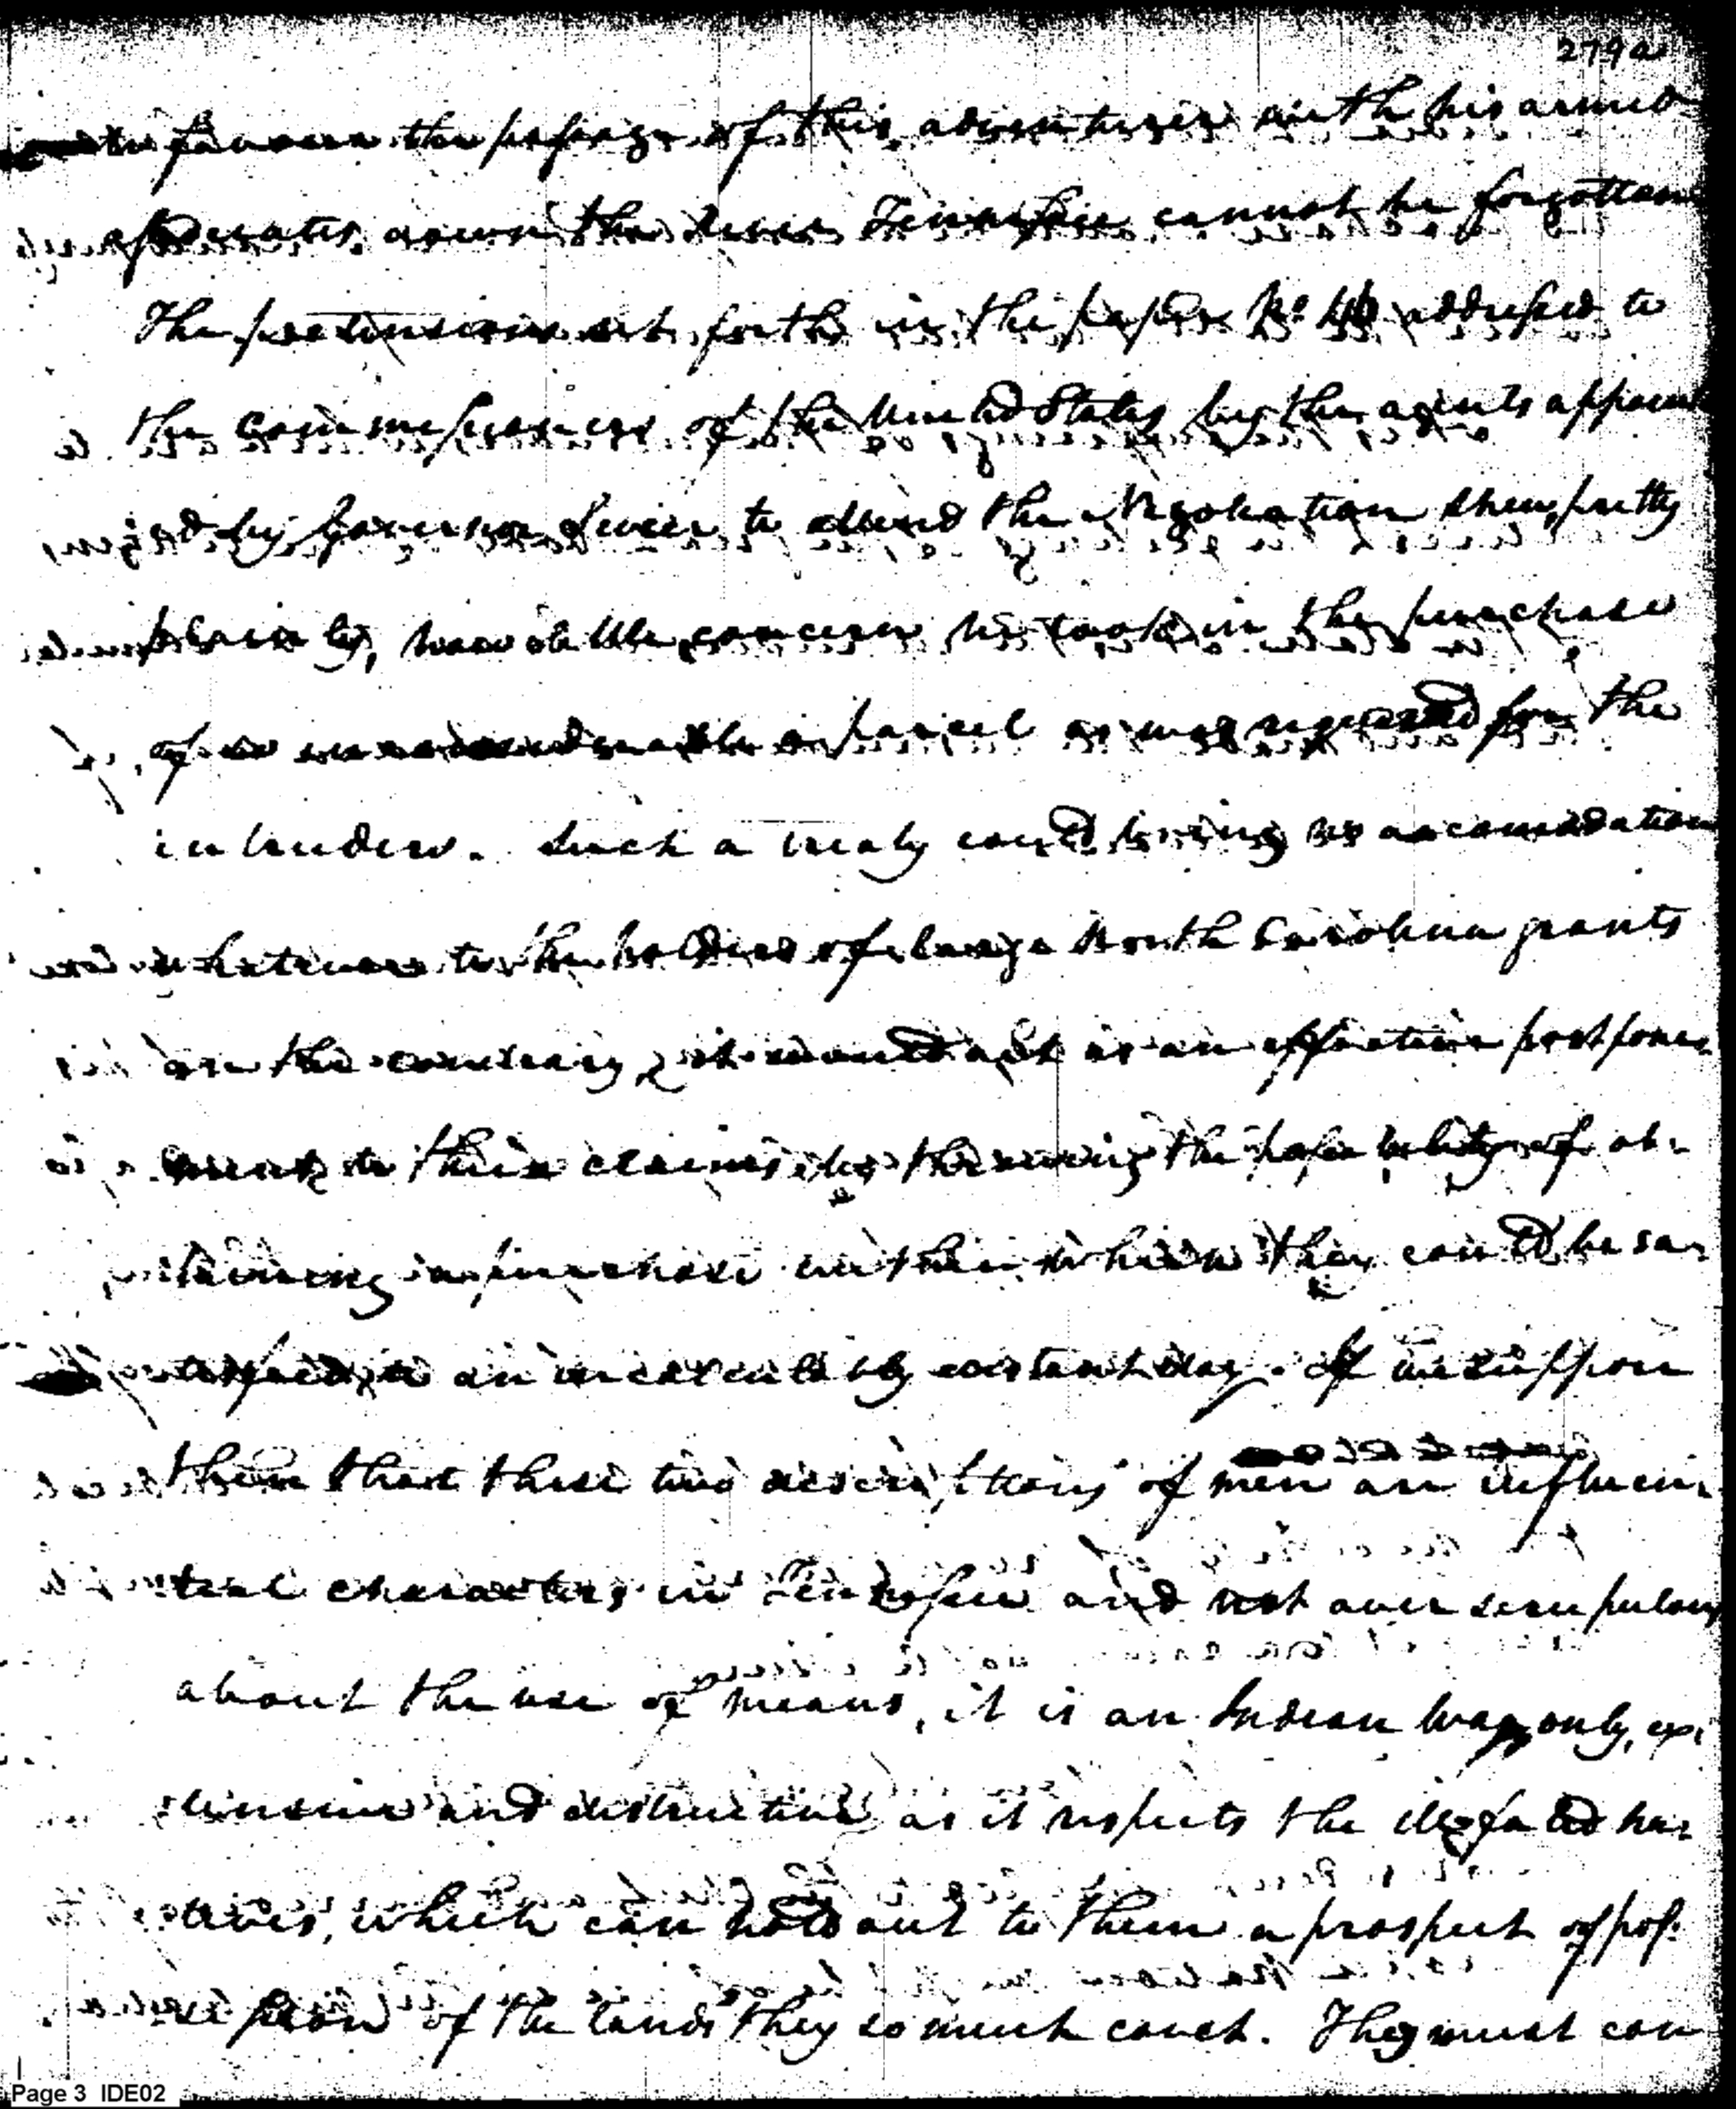 279a
to favour the passage of this adventurer with his armed
associates down the River Tennessee cannot be forgotten
The pretensions set forth in the paper No. addressed to
the commissioners of the United States by the agents appoint
ed by Governor Sevier to attend the Negotiation shew, pretty
plainly, how little concern he took in the purchase
of so inconsiderable a parcel as was required for the
intruders. Such a treaty could bring no accomodation
whatever to the holders of large North Carolina grants
on the contrary, it would act as an effective postpone-
ment to their claims by throwing the possibility of ob-
taining a purchase within which they could be sa-
tisfied, to an incalculably distant day. If we suppose
then that these two descriptions of men are influen-
tial characters in Tennessee and not over scrupulous
about the use of means, it is an Indian War, only, ex-
tensive and destructive as it respects the ill-fated na-
tives, which can hold out to them a prospect of pos-
session of the lands they so much covet. They must con
Page 3 IDE02